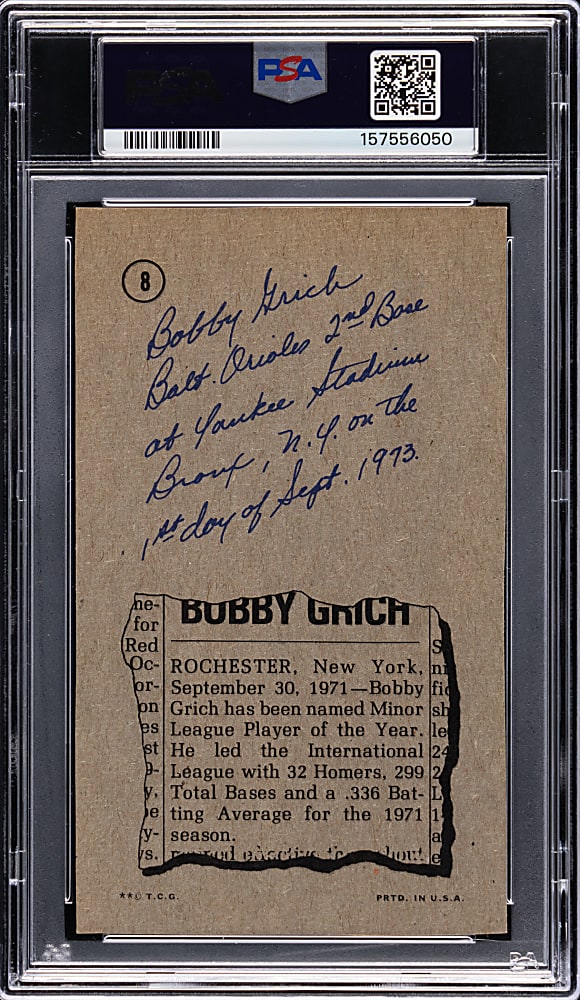 PSA
157556050
8
Bobby Grich
Balt. Orioles 2nd Base
at Yankee Stadium
Bronx, N.Y. on the
1st day of Sept. 1973.
BOBBY GRICH
ne-
for
Red
Oc-
or-
on
es
st
9-
y,
e
y-
s.
ROCHESTER, New York,
September 30, 1971—Bobby
Grich has been named Minor
League Player of the Year.
He led the International
League with 32 Homers, 299
Total Bases and a .336 Bat-
ting Average for the 1971
season.
S
ni
fic
sh
le
24
2
L
1
a
e
**© T.C.G.
PRTD. IN U.S.A.